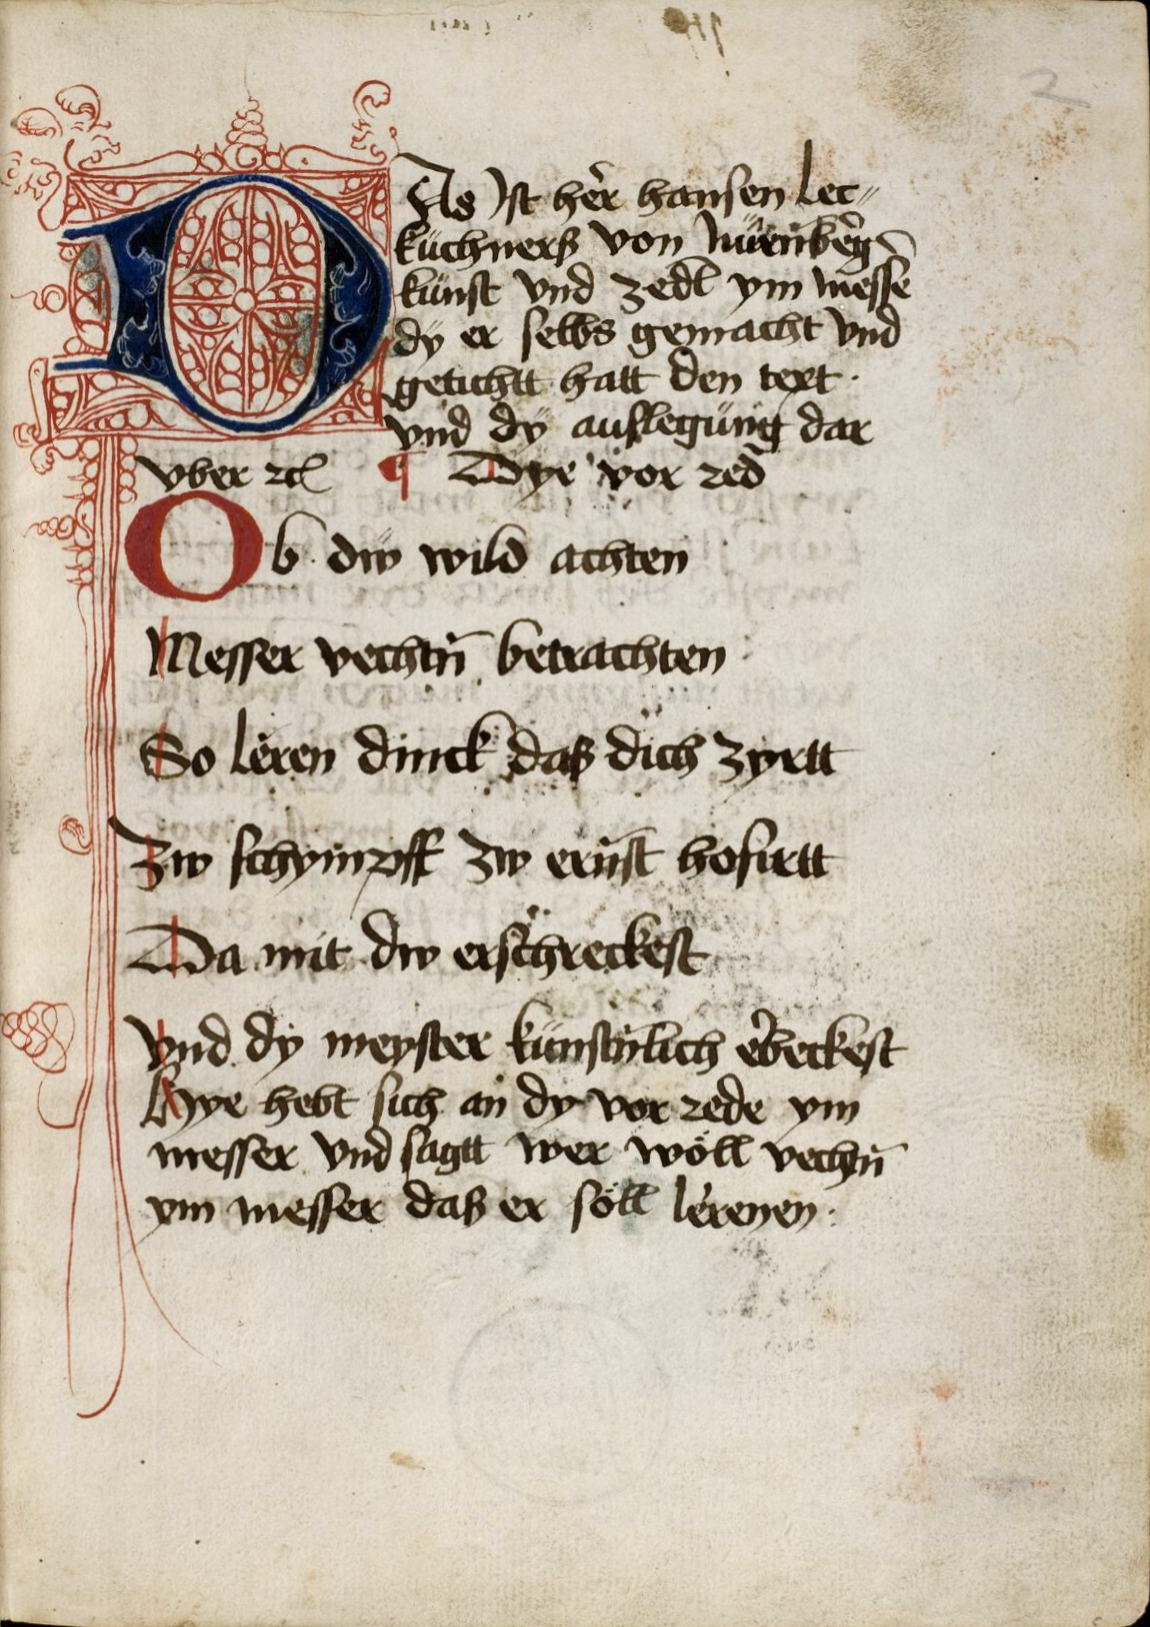 2
DAs Ist her̉ hansen Lec〃
kuchnerß von Nürmbe͛rg
kunst vnd zedl ym messe
dy er selbs gemacht vnd
getichtt hatt den text ·
vnd dÿ auslegüng dar
vber ꝛc̃ ¶ Dye vor red
Ob dw wild achten
Messer vechtn̄ betrachten
So leren dinck daß dich zyrtt
Zw schympff zw ernst hofirtt
Da mit dw erschreckest
Vnd dy meyster kunstn̄lich er̉beckest
Hye hebt sich an dy vor rede ym
messer vnd sagtt wer wöll vechtn̄
ym messer daß er söll lerenen ·